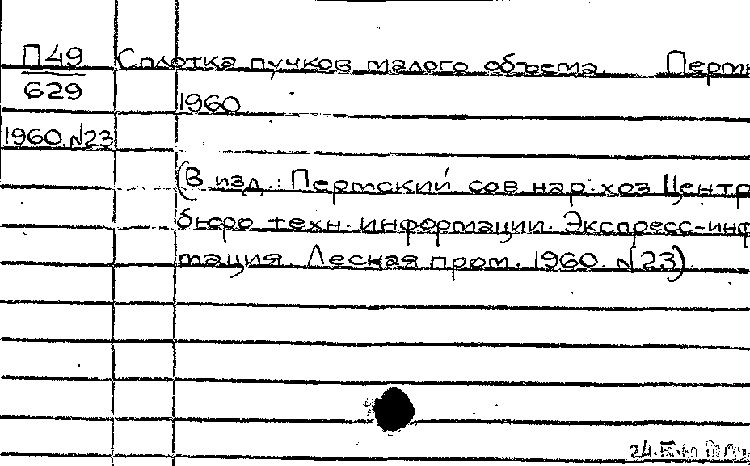 П49 Сплотка пучков малого объема. Пермь
629
1960
1960.N23
(В изд.: Пермский сов. нар. хоз. Центр
бюро техн. информации. Экспресс-инф
тация. Лесная пром. 1960. N23)